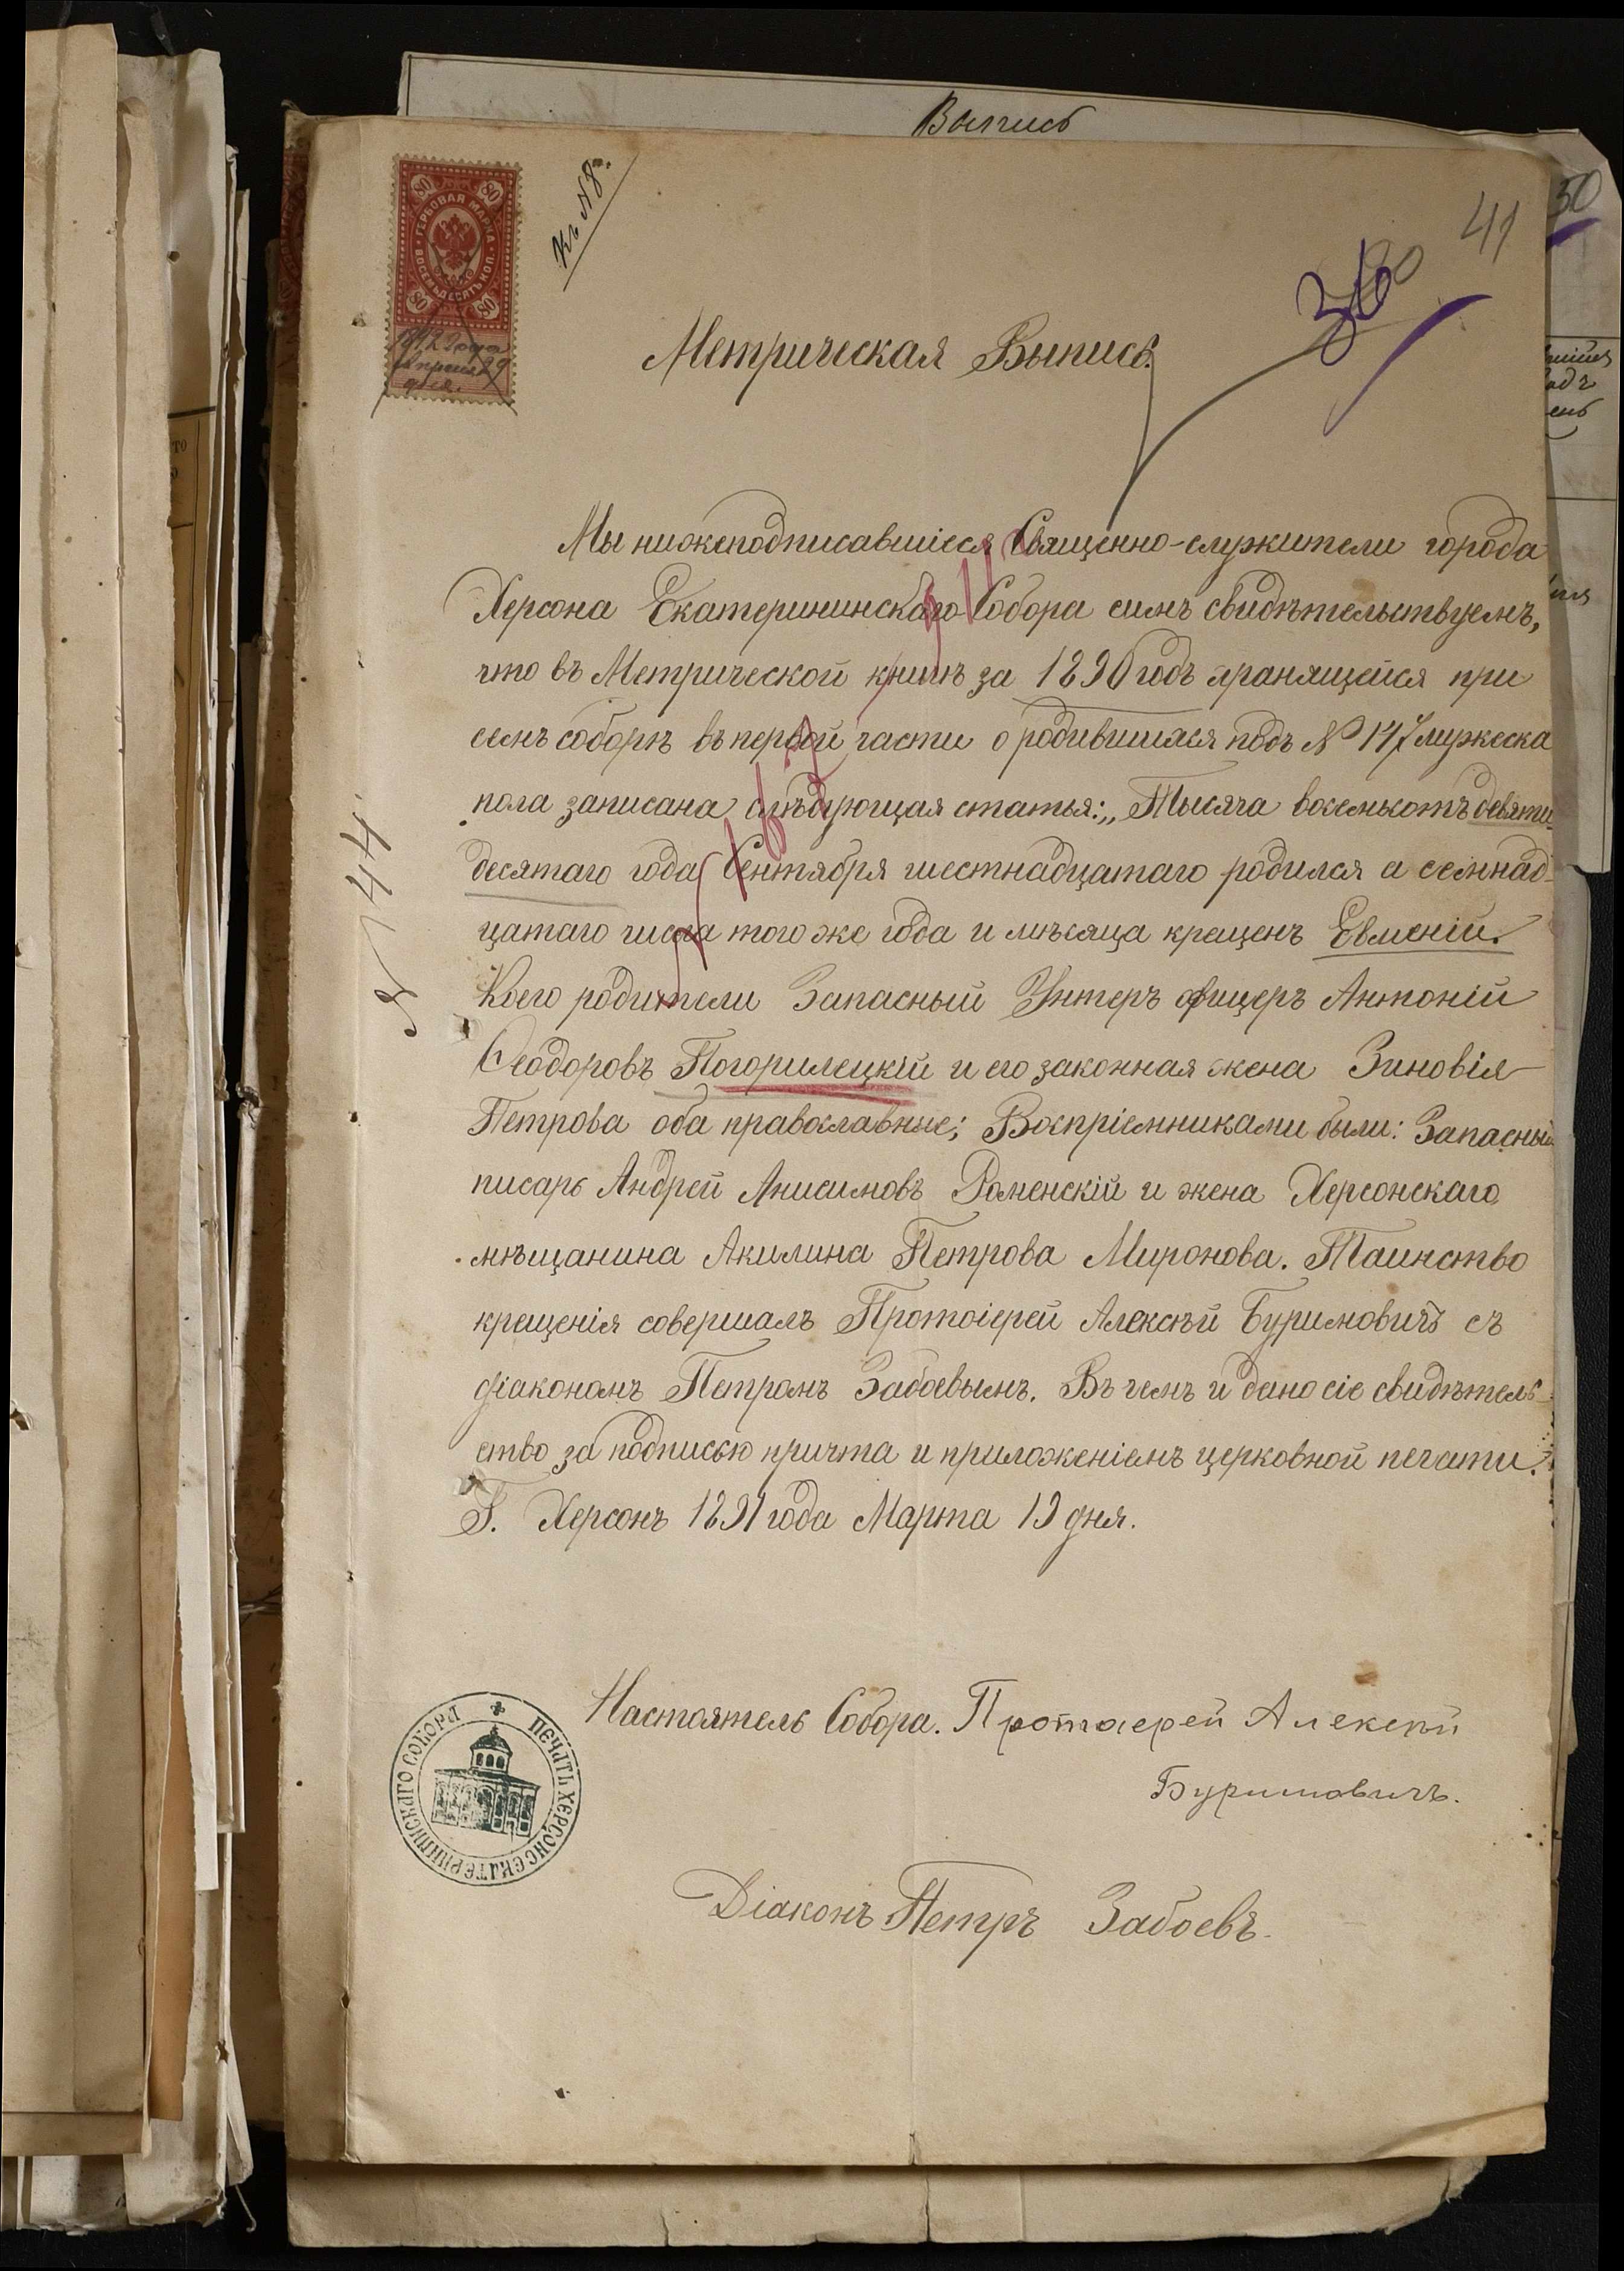 Выпись
Къ № 8.
80 80
ГЕРБОВАЯ МАРКА
ВОСЕМЬДЕСЯТЪ КОП.
80 80
1912 года
Апреля 29
дня.
41
50
36
Метрическая Выпись.
Мы нижеподписавшіеся Священно-служители города
Херсона Екатерининскаго Собора симъ свидѣтельствуемъ,
что въ Метрической книгѣ за 1890 годъ хранящейся при
семъ соборѣ въ первой части о родившихся подъ № 147 мужеска
пола записана слѣдующая статья: „Тысяча восемьсотъ девяти-
десятаго года Сентября шестнадцатаго родился а семнад-
цатаго числа того же года и мѣсяца крещенъ Евменій.
Коего родители Запасный Унтеръ офицеръ Антоній
Ѳеодоровъ Погорилецкій и его законная жена Зиновія
Петрова оба православные; Воспріемниками были: Запасный
писарь Андрей Анисимовъ Роменскій и жена Херсонскаго
мѣщанина Акилина Петрова Миронова. Таинство
крещенія совершалъ Протоіерей Алексѣй Буримовичъ съ
діакономъ Петромъ Забоевымъ. Въ чемъ и дано сіе свидѣтель-
ство за подписью причта и приложеніемъ церковной печати.
Г. Херсонъ 1891 года Марта 19 дня.
Настоятель Собора. Протоіерей Алексѣй
Буримовичъ.
Діаконъ Петръ Забоевъ.
ПЕЧАТЬ ХЕРСОНС ЕКАТЕРИНИНСКАГО СОБОРА